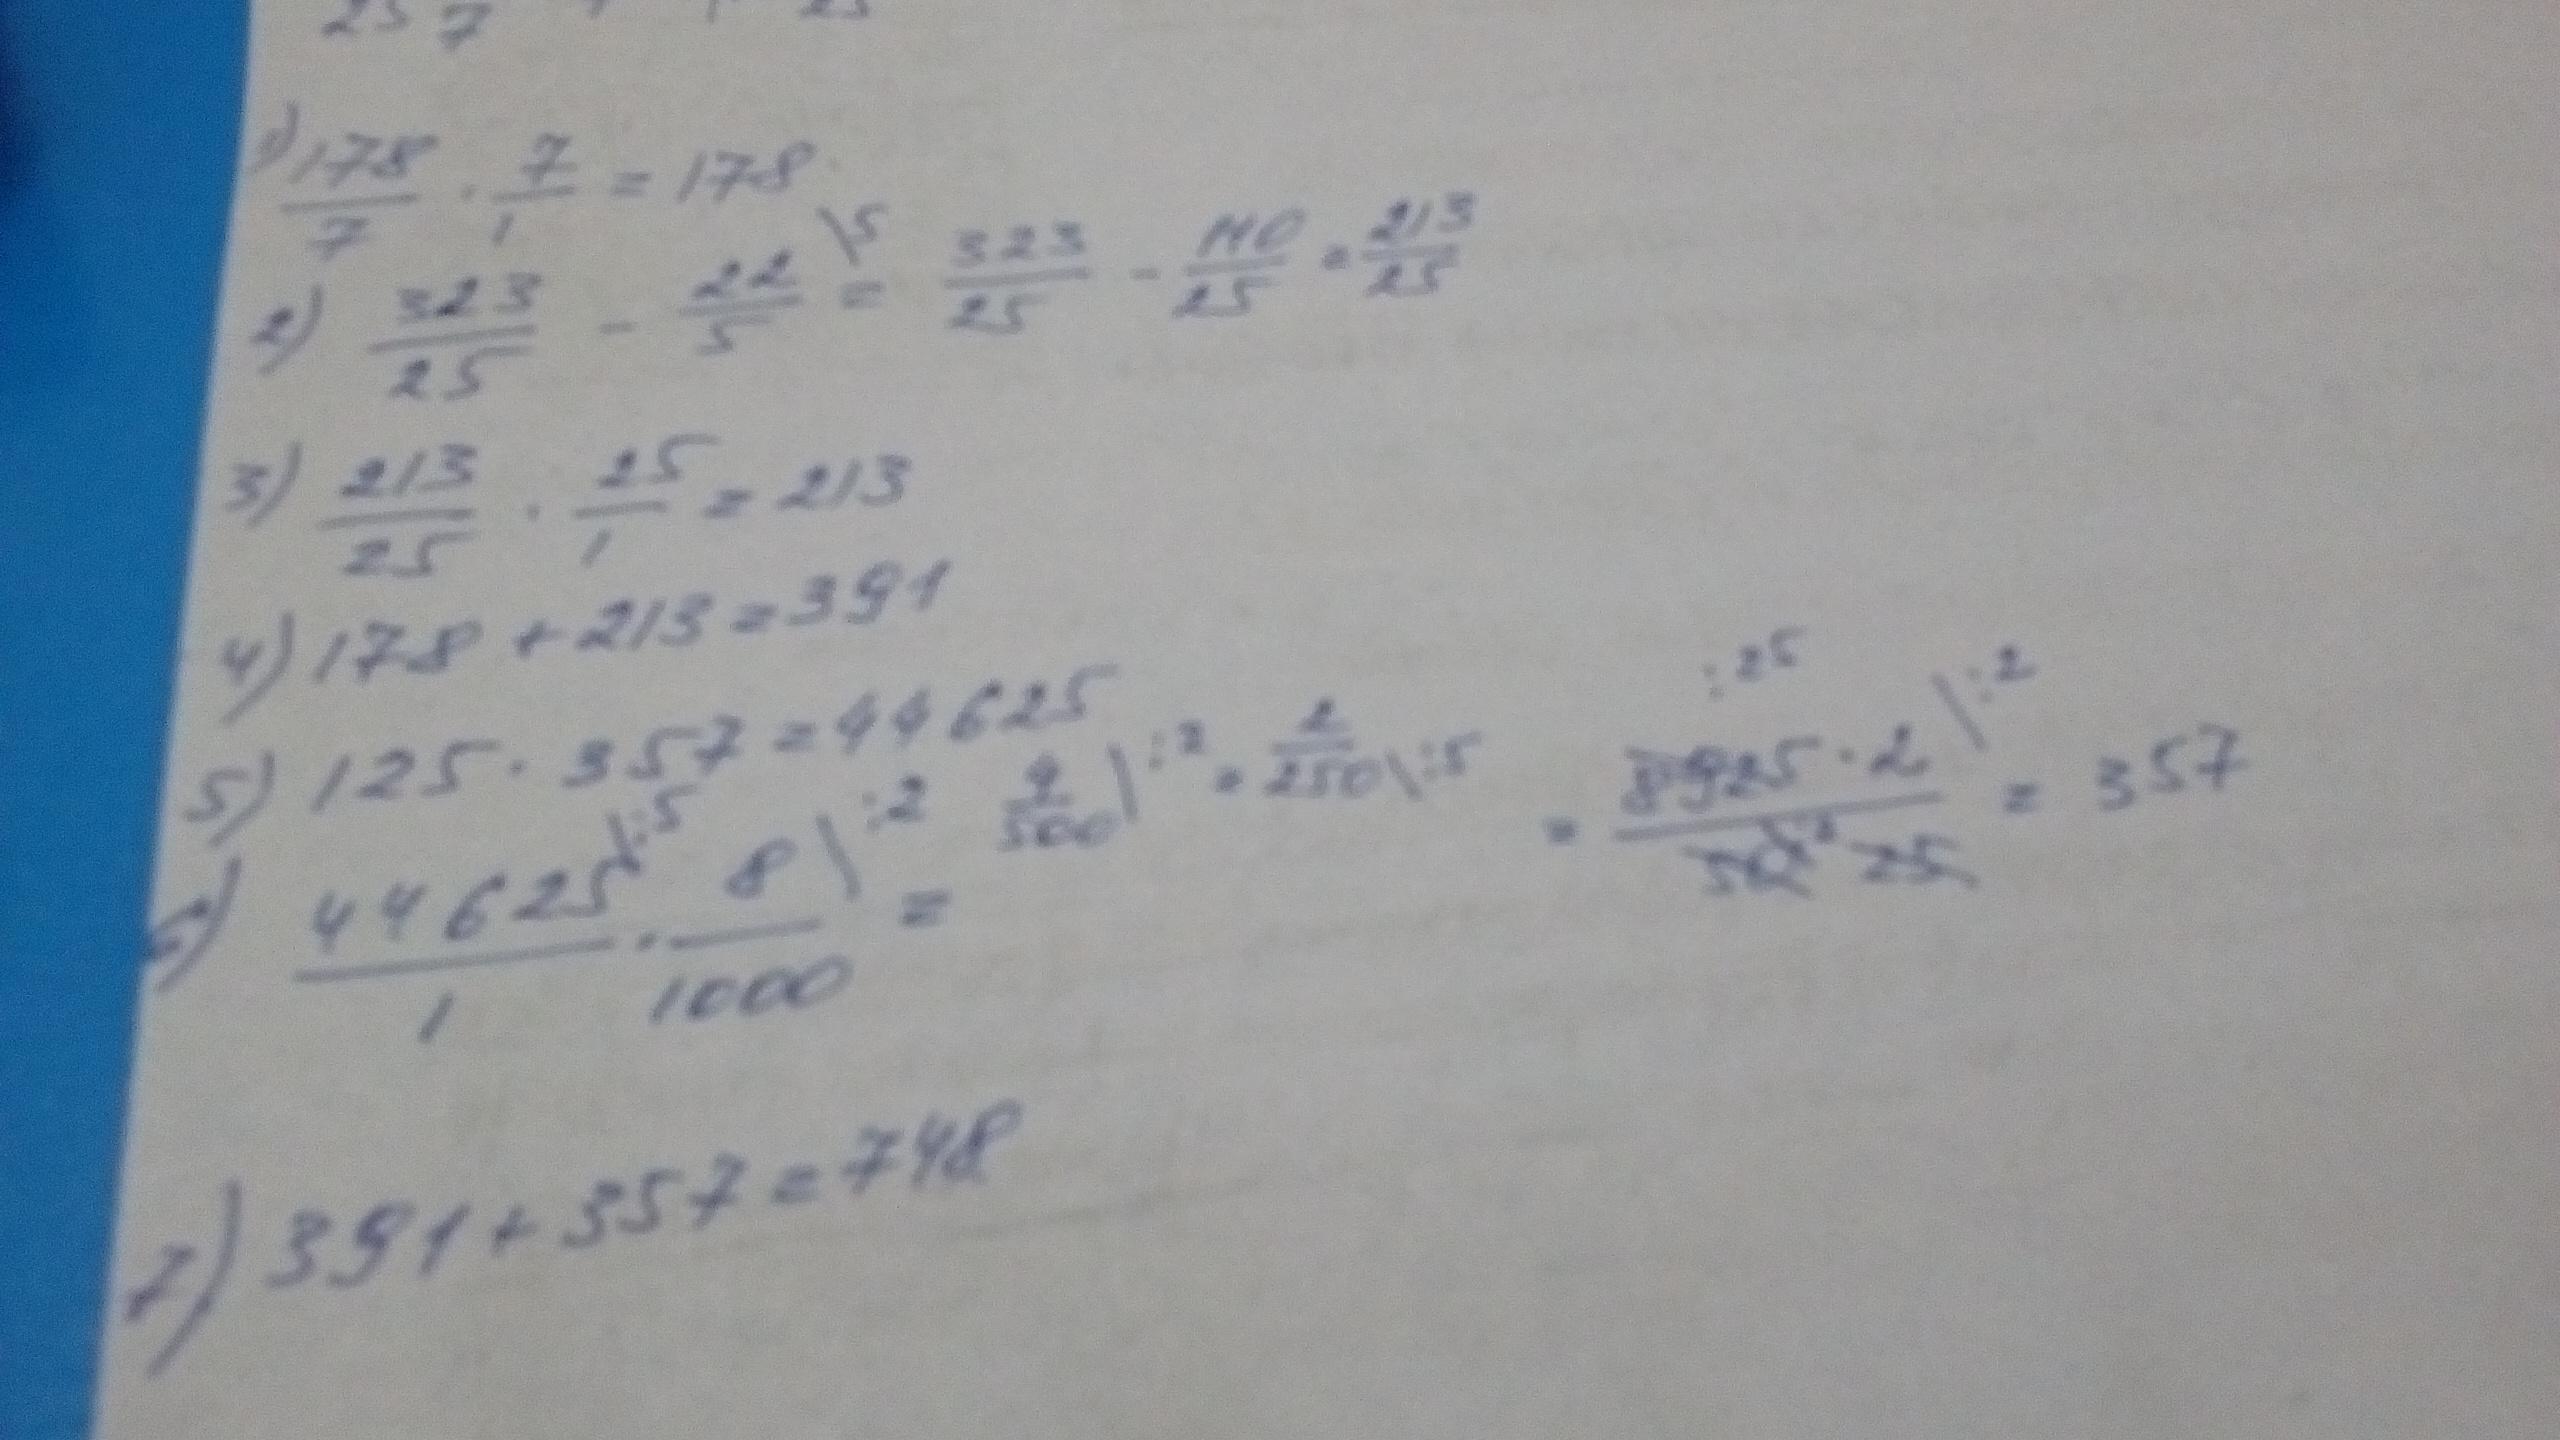 25 7 25
1) 178/7 · 7/1 = 178
2) 323/25 - 22/5 \5 = 323/25 - 110/25 = 213/25
3) 213/25 · 25/1 = 213
4) 178 + 213 = 391
5) 125 · 357 = 44625
6) 44625\:5/1 · 8/1000 \:2 = 4/500 \:2 = 2/250 \:5 = 8925 · 2/50 25 :25 \:2 = 357
7) 391 + 357 = 748